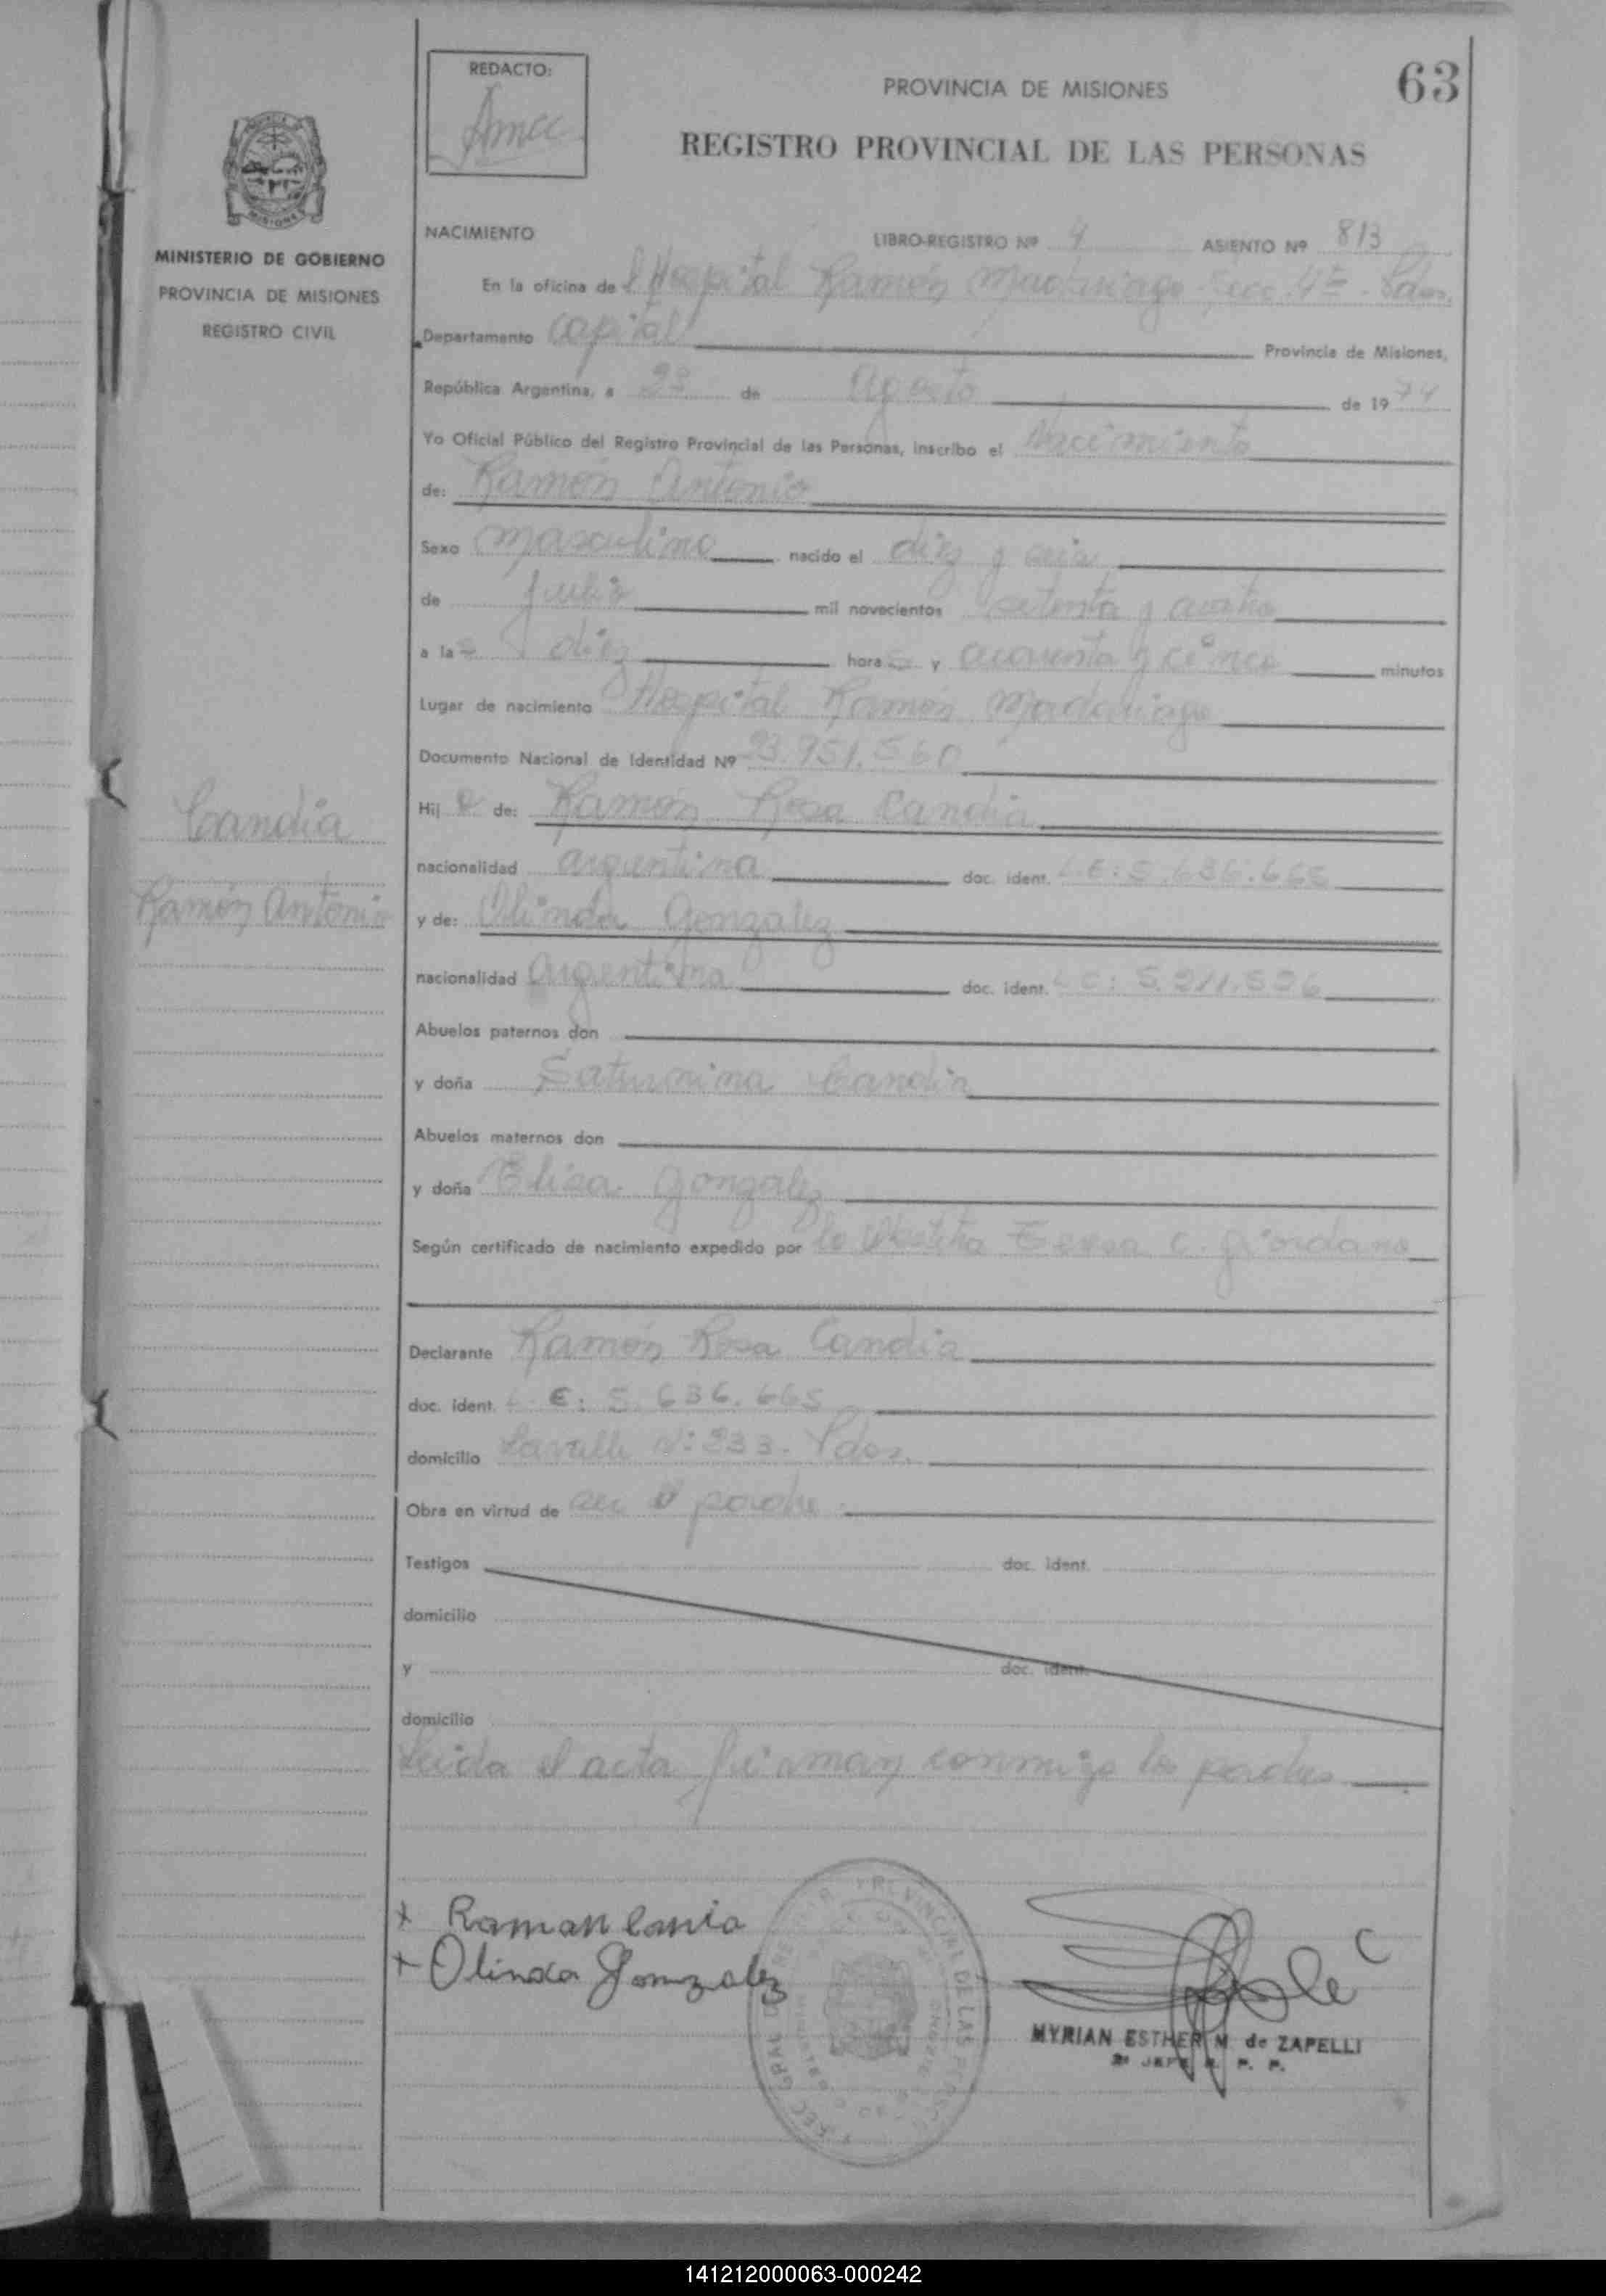 REDACTO:
PROVINCIA DE MISIONES
63
REGISTRO PROVINCIAL DE LAS PERSONAS
MISIONES
MINISTERIO DE GOBIERNO
PROVINCIA DE MISIONES
REGISTRO CIVIL
NACIMIENTO LIBRO-REGISTRO Nº 4 ASIENTO Nº 813
En la oficina de l Hospital Ramón Madariaga Secc. 4ª - Pdas.
Departamento Capital Provincia de Misiones,
República Argentina, a 23 de Agosto de 1974
Yo Oficial Público del Registro Provincial de las Personas, inscribo el Nacimiento
de: Ramón Antonio
Sexo Masculino nacido el diez y seis
de Julio mil novecientos setenta y cuatro
a las diez horas y cuarenta y cinco minutos
Lugar de nacimiento Hospital Ramón Madariaga
Documento Nacional de Identidad Nº 23.951.560
Hijo de: Ramón Rosa Candia
Candia
nacionalidad argentina doc. ident. L.E: 5.636.665
Ramón Antonio
y de: Olinda Gonzalez
nacionalidad Argentina doc. ident. L C: 5.211.596
Abuelos paternos don
y doña Saturnina Candia
Abuelos maternos don
y doña Elisa Gonzalez
Según certificado de nacimiento expedido por la Obstetra Teresa C. Giordano
Declarante Ramón Rosa Candia
doc. ident. L. E: 5.636.665
domicilio Lavalle Nº 233. Pdas.
Obra en virtud de ser el padre
Testigos doc. ident.
domicilio
y doc. ident.
domicilio
Leida el acta firman conmigo los padres
+ Raman Cania
+ Olinda Gonzalez
MYRIAN ESTHER M. de ZAPELLI
2º JEFE R. P. P.
141212000063-000242